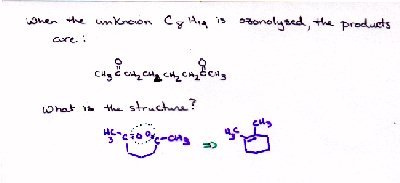 When the unknown C8H14 is ozonolyzed, the products
are:
O O
CH3CCH2CH2CH2CH2CCH3
What is the structure?
H3C-C=O O=C-CH3 ⇒ H3C CH3